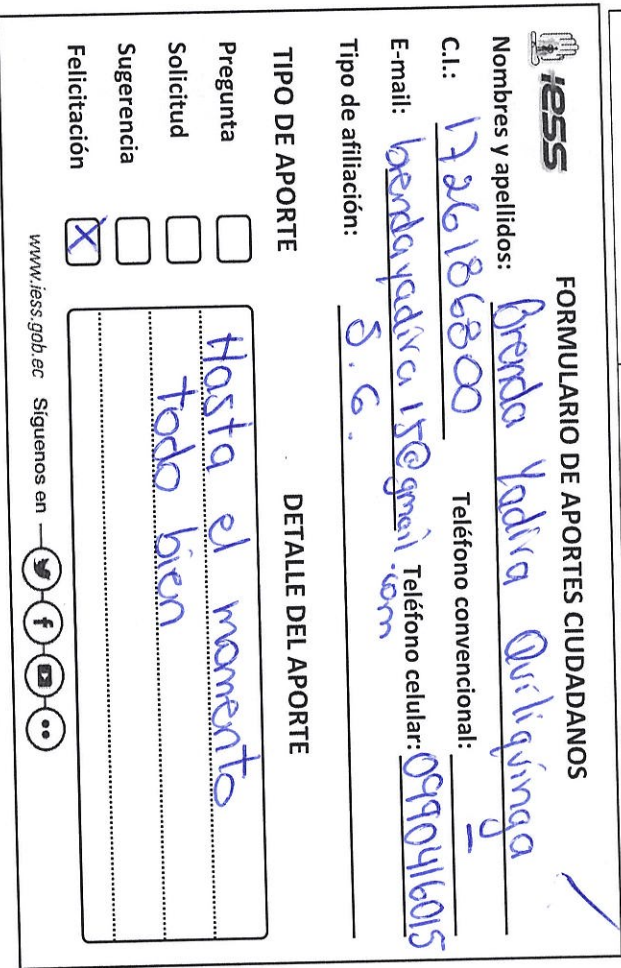 iess
FORMULARIO DE APORTES CIUDADANOS
Nombres y apellidos: Brenda Yadira Quiliquinga
C.I.: 1726186800 Teléfono convencional: -
E-mail: bendayadira15@gmail.com Teléfono celular: 0990416015
Tipo de afiliación: S.G.
TIPO DE APORTE
DETALLE DEL APORTE
Pregunta
Solicitud
Sugerencia
Felicitación X
Hasta el momento
todo bien
www.iess.gob.ec Síguenos en